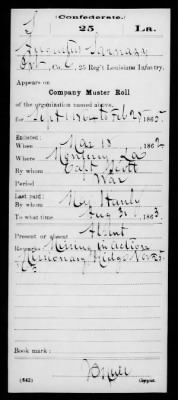 (Confederate.)
25 La.
Pvt, Co. C, 25 Reg't Louisiana Infantry.
Appears on
Company Muster Roll
of the organization named above,
for Sept 1 1864 to Feb 25, 1865.
Enlisted:
When Mar 10, 1862
Where Monroe, La
By whom Capt Scott
Period War
Last paid:
By whom Maj
To what time Aug 31, 1863.
Present or absent Absent
Remarks Missing in action
Missionary Ridge Nov 25.
Book mark:
(642) Copyist.